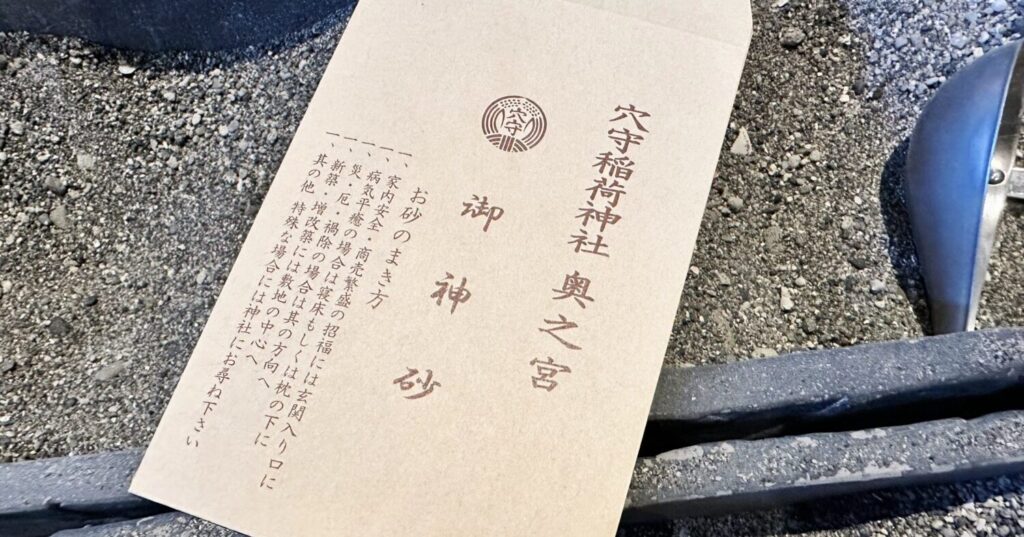 穴守稲荷神社 奥之宮
穴守
御神砂
お砂のまき方
一、家内安全・商売繁盛の招福には玄関入り口に
一、病気平癒の場合は寝床もしくは枕の下に
一、災・厄・禍除の場合は其の方向へ
一、新築・増改築には敷地の中心へ
一、其の他、特殊な場合には神社にお尋ね下さい